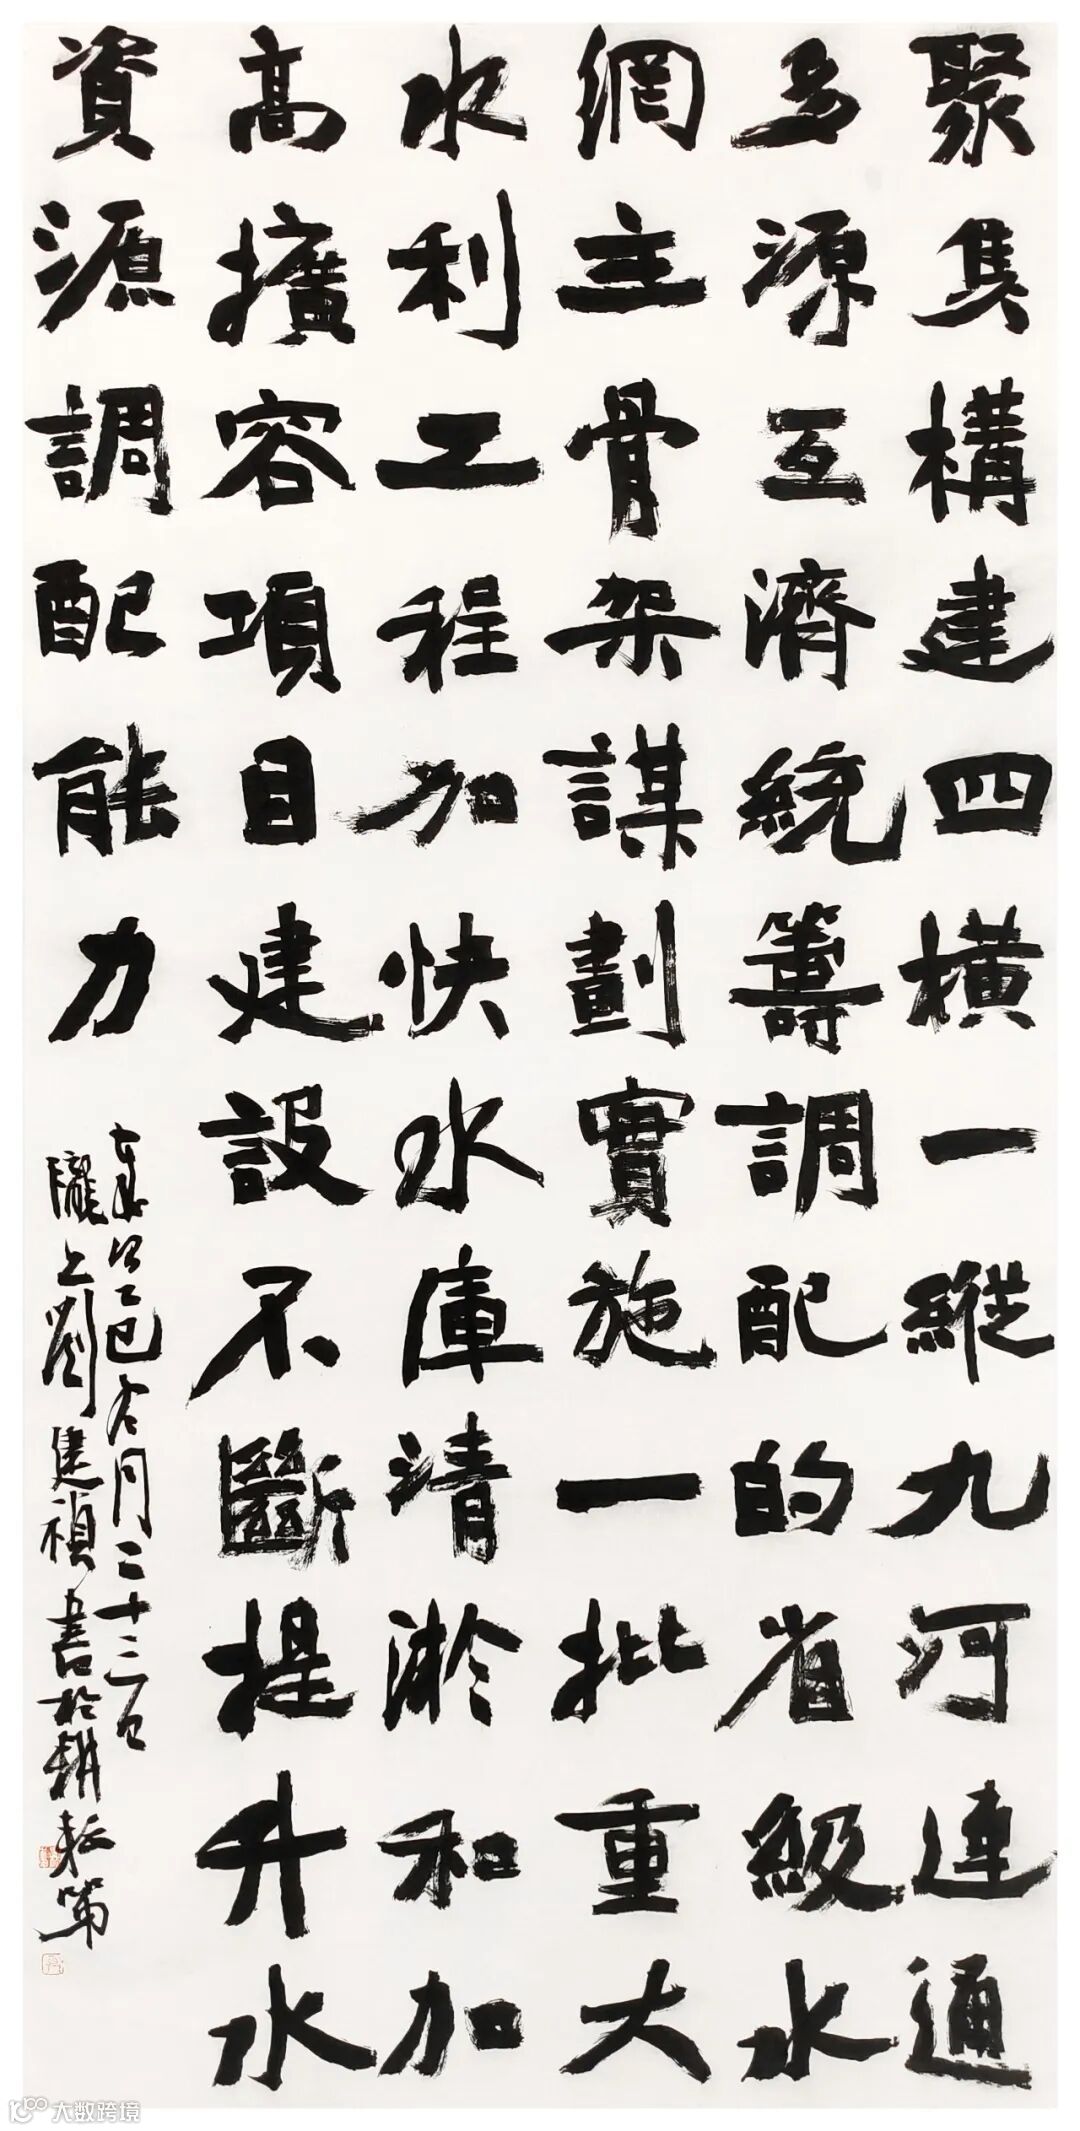 聚集構建四横一縱九河連通
多源互濟統籌調配的省級水
網主骨架謀劃實施一批重大
水利工程加快水庫清淤和加
高擴容項目建設不斷提升水
資源調配能力
歲乙巳 月二十三日
隴上劉建禎書於耕耘
大数跨境